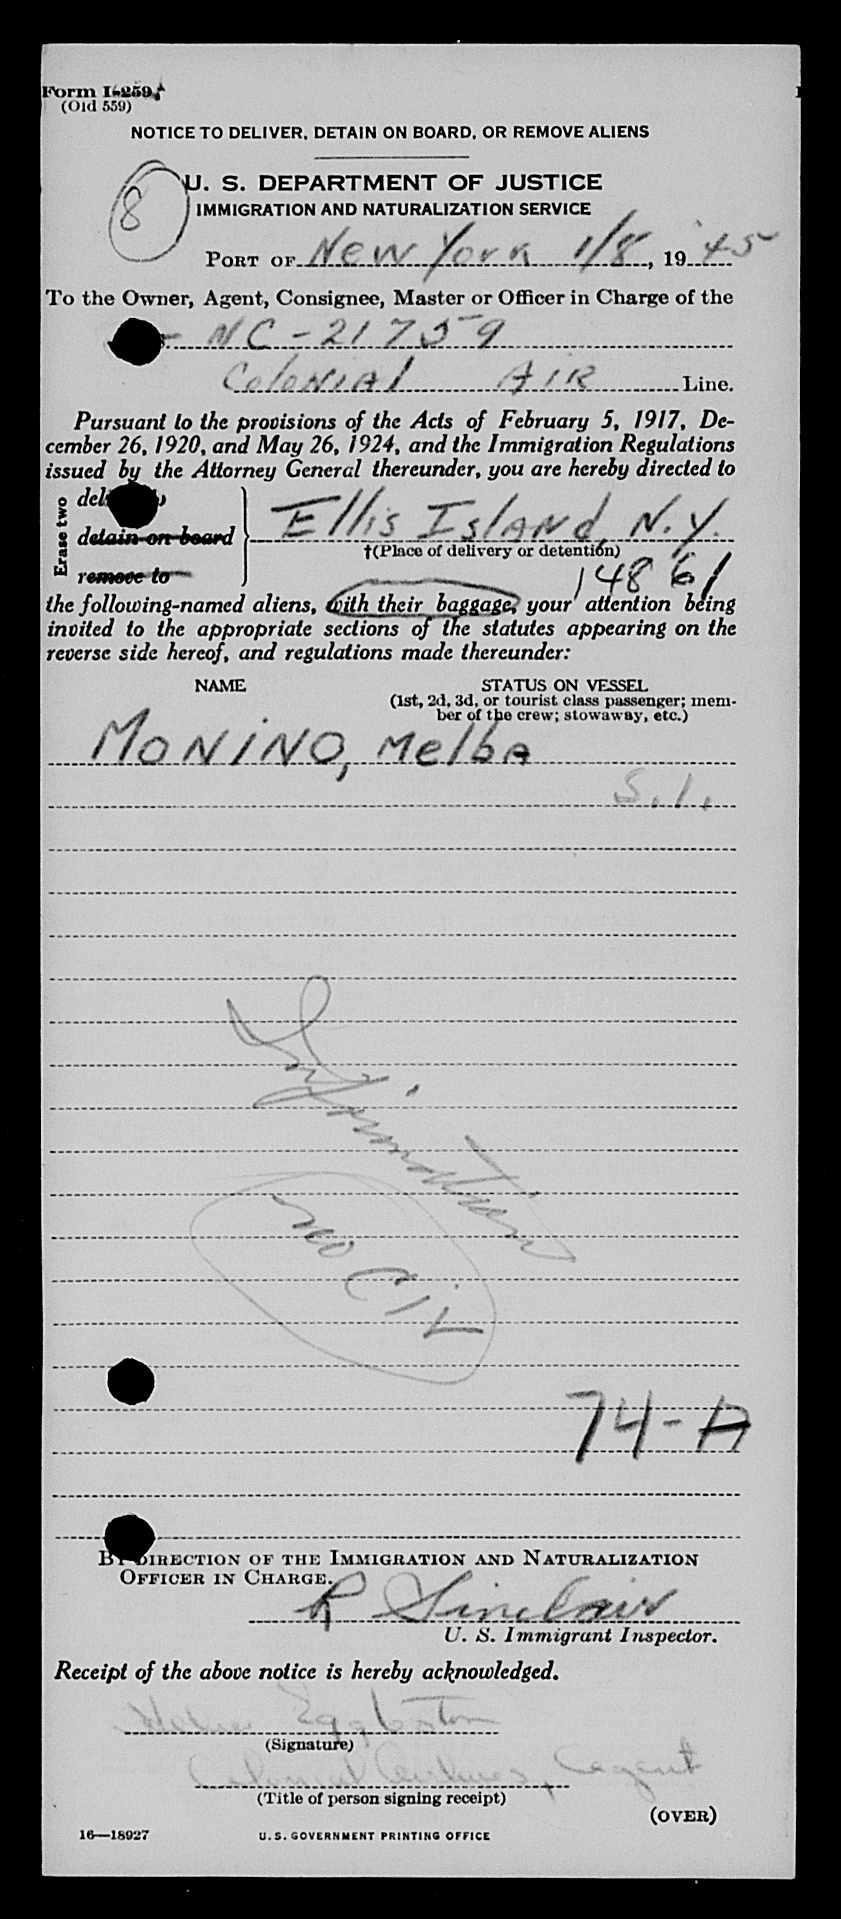 Form I-259
(Old 559)
NOTICE TO DELIVER, DETAIN ON BOARD, OR REMOVE ALIENS
8
U. S. DEPARTMENT OF JUSTICE
IMMIGRATION AND NATURALIZATION SERVICE
PORT OF New York 1/8, 19 45
To the Owner, Agent, Consignee, Master or Officer in Charge of the
NC-21759
Colonial AIR Line.
Pursuant to the provisions of the Acts of February 5, 1917, De-
cember 26, 1920, and May 26, 1924, and the Immigration Regulations
issued by the Attorney General thereunder, you are hereby directed to
Erase two
detain on board
remove to
Ellis Island, N.Y.
†(Place of delivery or detention)
14861
the following-named aliens, with their baggage, your attention being
invited to the appropriate sections of the statutes appearing on the
reverse side hereof, and regulations made thereunder:
NAME STATUS ON VESSEL
(1st, 2d, 3d, or tourist class passenger; mem-
ber of the crew; stowaway, etc.)
MONINO, Melba
S.I.
Information
no CIL
74-A
BY DIRECTION OF THE IMMIGRATION AND NATURALIZATION
OFFICER IN CHARGE.
R Sinclair
U. S. Immigrant Inspector.
Receipt of the above notice is hereby acknowledged.
Eggleston
(Signature)
Colonial Airlines, Agent
(Title of person signing receipt)
(OVER)
16—18927 U. S. GOVERNMENT PRINTING OFFICE